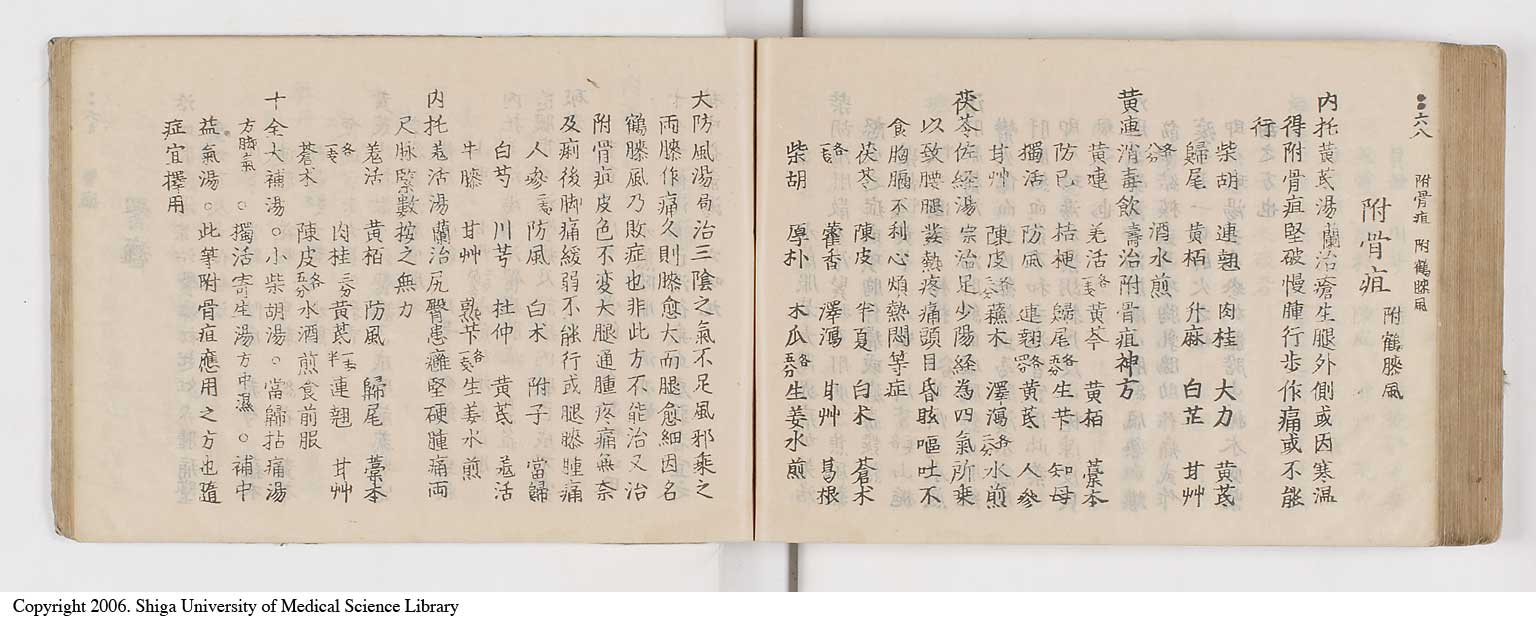 六八 附骨疽 附鶴膝風
附骨疽 附鶴膝風
内托黄芪湯蘭治瘡生腿外側或因寒温
得附骨疽堅破慢腫行步作痛或不能
行
柴胡 連翹 肉桂 大力 黄芪
歸尾 黄栢 升麻 白芷 甘艸
各 酒水煎
黄連消毒飲壽治附骨疽神方
黄連 羌活各 黄芩 黄栢 藁本
防已 桔梗 歸尾各五分 生苄 知母
獨活 防風 連翹各四分 黄芪 人參
甘艸 陳皮二分 蘇木 澤瀉各二分 水煎
茯苓佐経湯宗治足少陽経為四氣所乗
以致腰腿発熱疼痛頭目昏眩嘔吐不
食胸膈不利心煩熱悶等症
茯苓 陳皮 半夏 白朮 蒼朮
各 藿香 澤瀉 甘艸 葛根
柴胡 厚朴 木瓜各五分 生姜水煎
大防風湯局治三陰之氣不足風邪乗之
両膝作痛久則膝愈大而腿愈細因名
鶴膝風乃敗症也非此方不能治又治
附骨疽皮色不変大腿通腫疼痛無奈
及痢後脚痛緩弱不能行或腿膝腫痛
人參二 防風 白朮 附子 當歸
白芍 川芎 杜仲 黄芪 羌活
牛膝 甘艸 熟苄各 生姜水煎
内托羌活湯蘭治尻臀患癰堅硬腫痛両
尺脉緊數按之無力
羌活 黄栢 防風 歸尾 藁本
各 肉桂三分 黄芪一半 連翹 甘艸
蒼朮 陳皮各五分 水酒煎食前服
十全大補湯○小柴胡湯○當歸拈痛湯
方脚氣○獨活寄生湯方中濕○補中
益氣湯○此等附骨疽應用之方也隨
症宜擇用
Copyright 2006. Shiga University of Medical Science Library